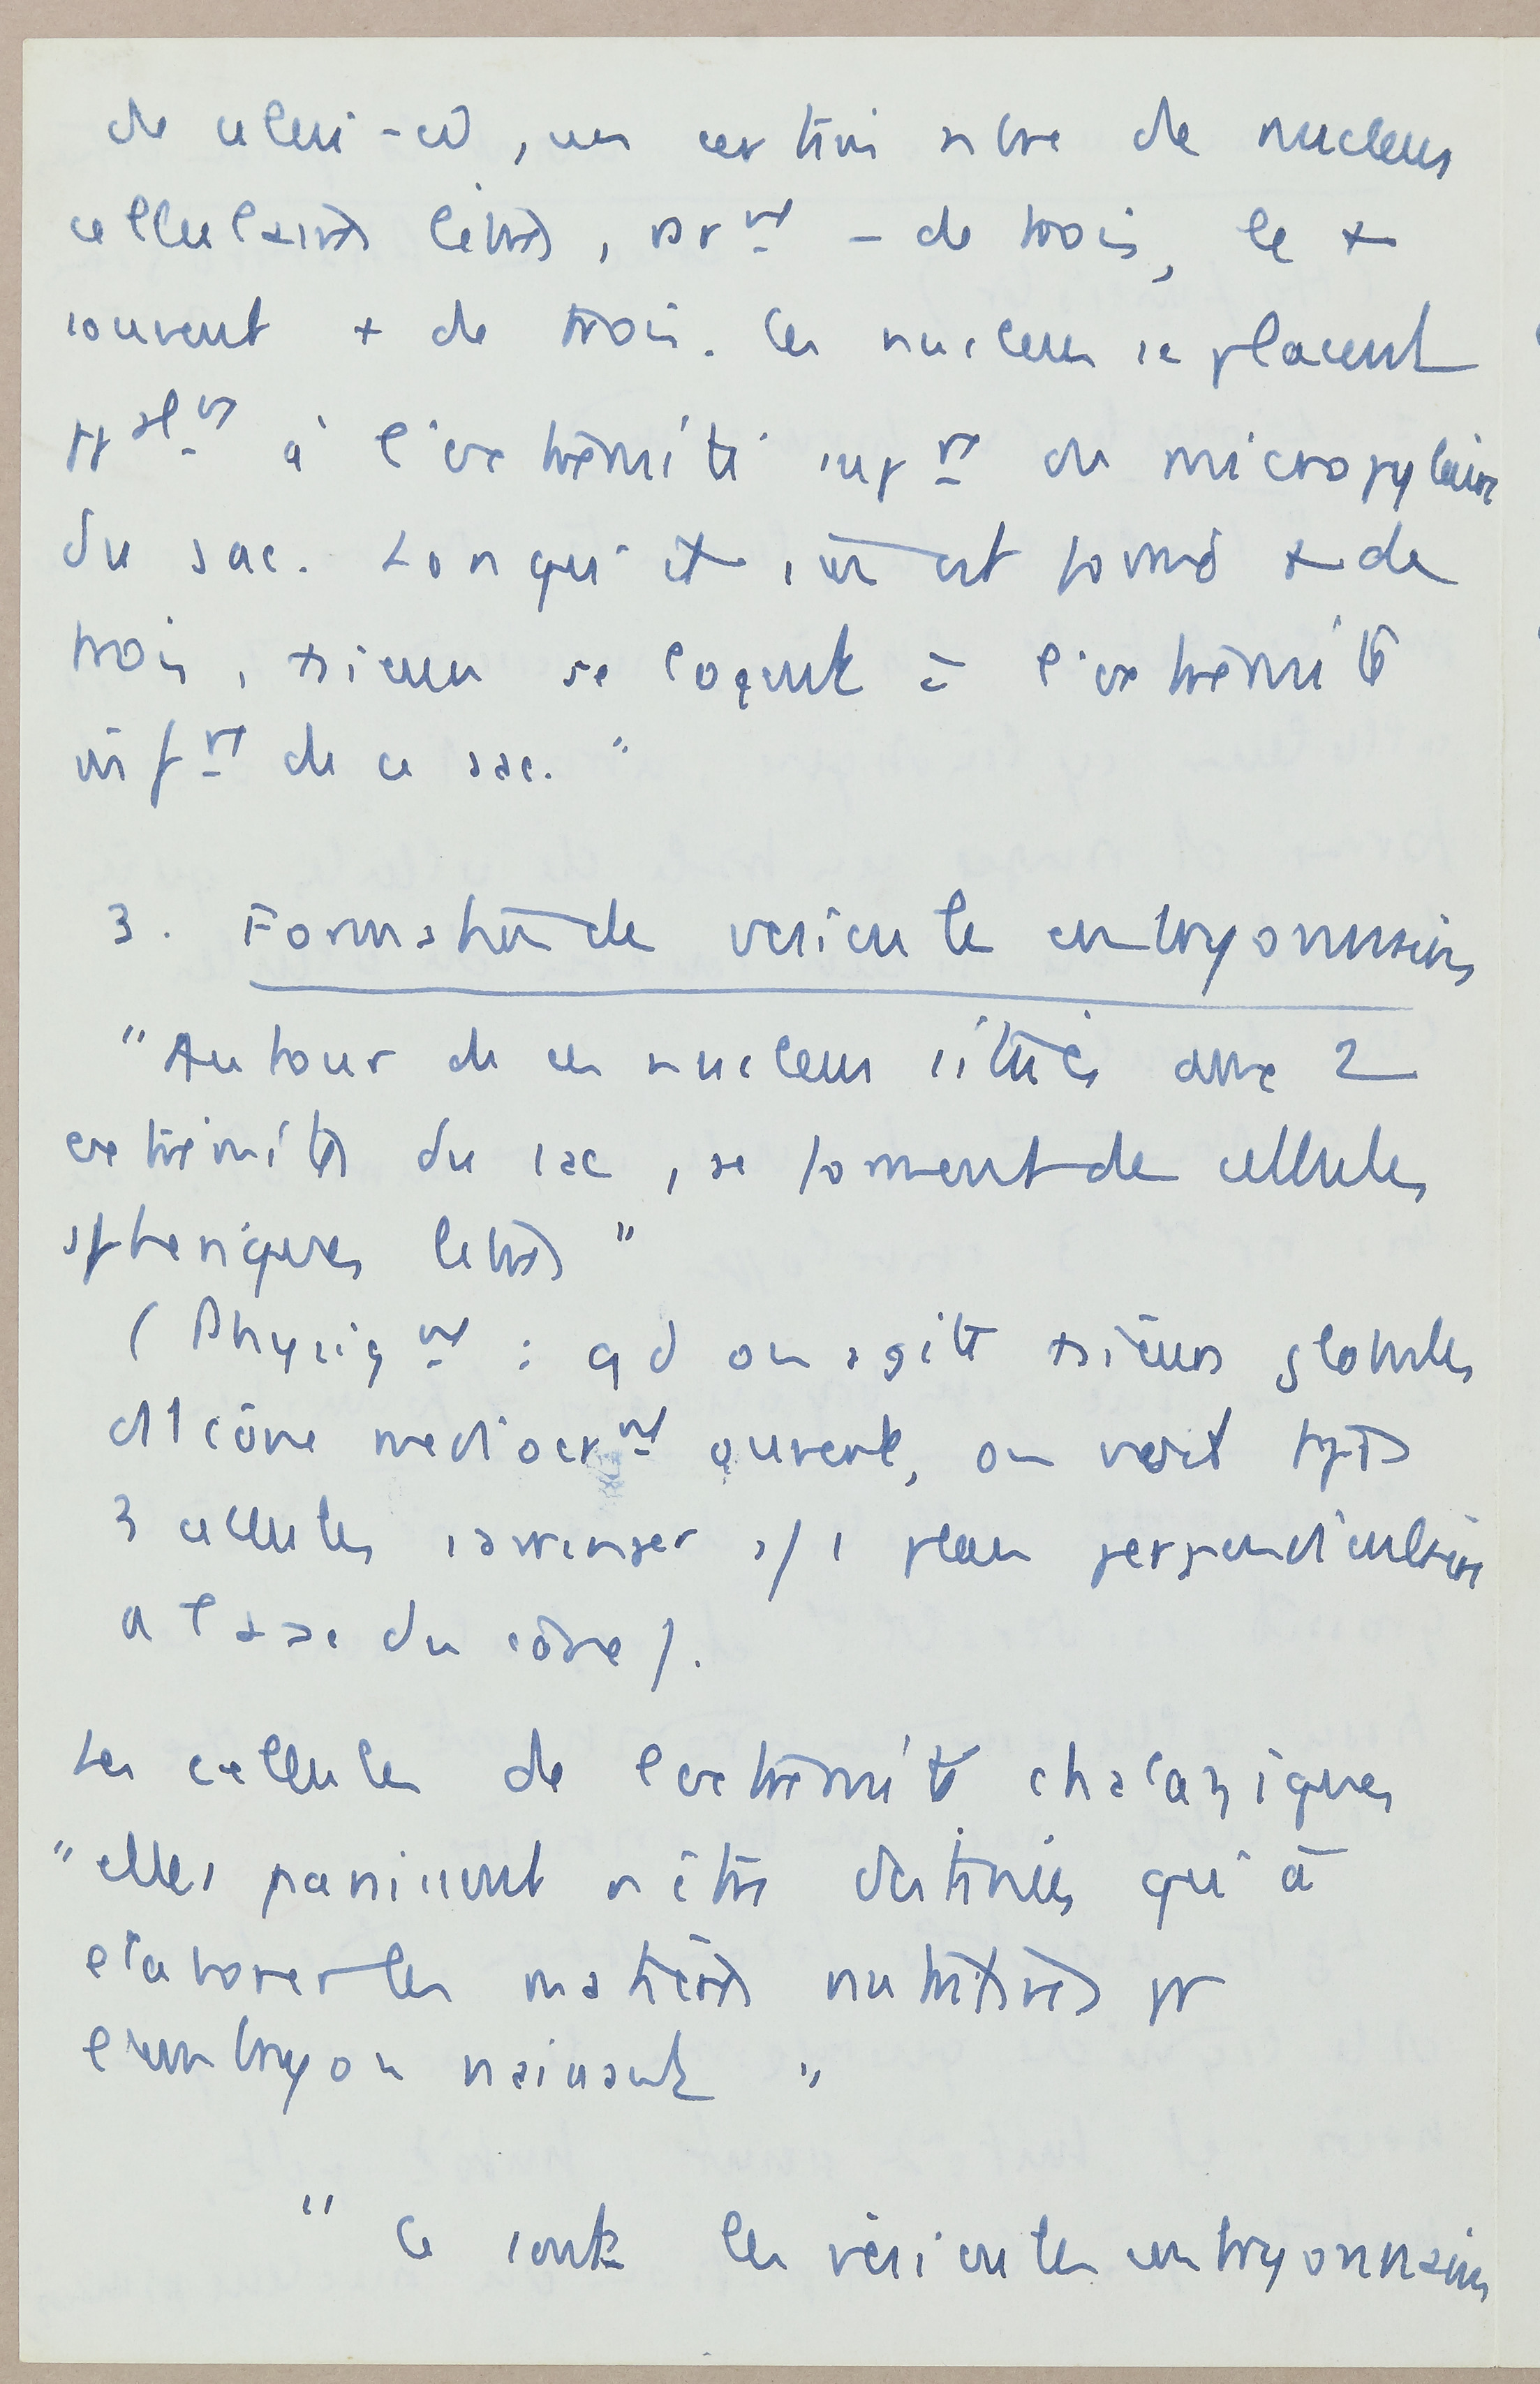 de celui-ci, un certain nbre de nucleus
cellulaires libres, rart - de trois, le +
souvent + de trois. Ces nucleus se placent
à l'extrémité supre du micropylaire
du sac. Lorsqu'il s'en est formé + de
trois, +sieurs se logent à l'extrémité
infre de ce sac."
3. Formation de vesicule embryonnaires
"Autour de ces nucleus situés aux 2
extrémités du sac, se forment de cellules
spheriques libres"
(Physiqnt : qd on agite +sieurs globules
ds 1 cône mediocrnt ouvert, on voit tjrs
3 cellules s'arranger s/ 1 plan perpendiculaire
a l'axe du cône).
Les cellules de l'extrémité chalaziques
"elles paraissent n'être destinées qu'à
elaborer les matières nutritives pr
l'embryon naissant "
" Ce sont les vésicules embryonnaires